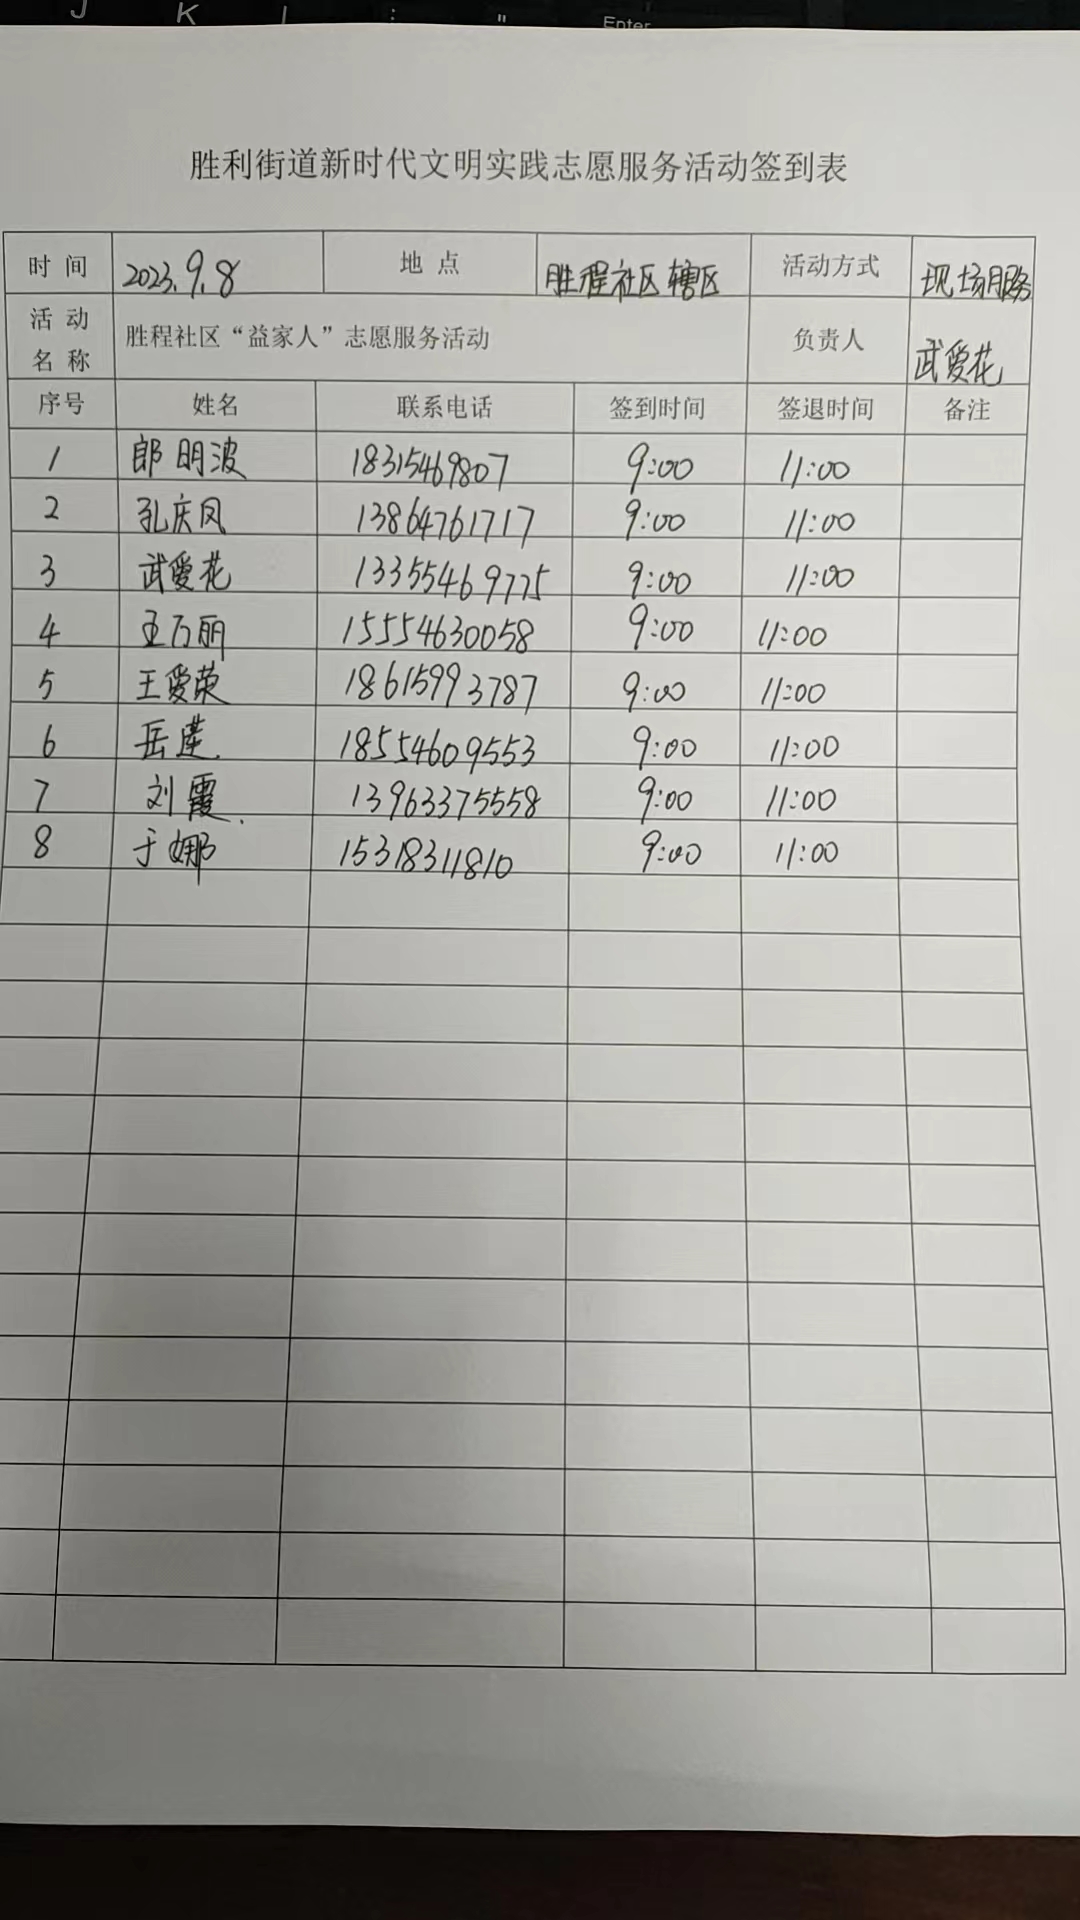 J K L : " Enter
胜利街道新时代文明实践志愿服务活动签到表
时 间 2023.9.8 地 点 胜程社区辖区 活动方式 现场服务
活 动 名 称 胜程社区“益家人”志愿服务活动 负责人 武爱花
序号 姓名 联系电话 签到时间 签退时间 备注
1 郎明波 18315469807 9:00 11:00
2 孔庆凤 13864761717 9:00 11:00
3 武爱花 13355469775 9:00 11:00
4 王万丽 15554630058 9:00 11:00
5 王爱荣 18615993787 9:00 11:00
6 岳莲 18554609553 9:00 11:00
7 刘霞. 13963375558 9:00 11:00
8 于娜 15318311810 9:00 11:00